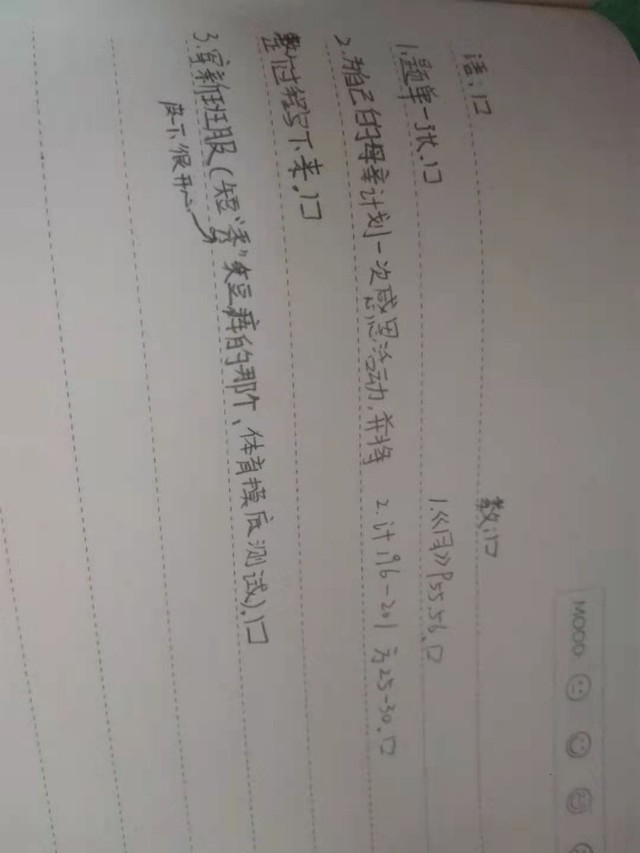 MOOD:
语:口
数:口
1.题单一张.口
1.《同》P55.56.口
2.为自己的母亲计划一次感恩活动,并将
2.计196-201 方25-30.口
整个过程写下来.口
3.穿新班服(短"秀"豌豆的那个、体育摸底测试).口
表示很开心